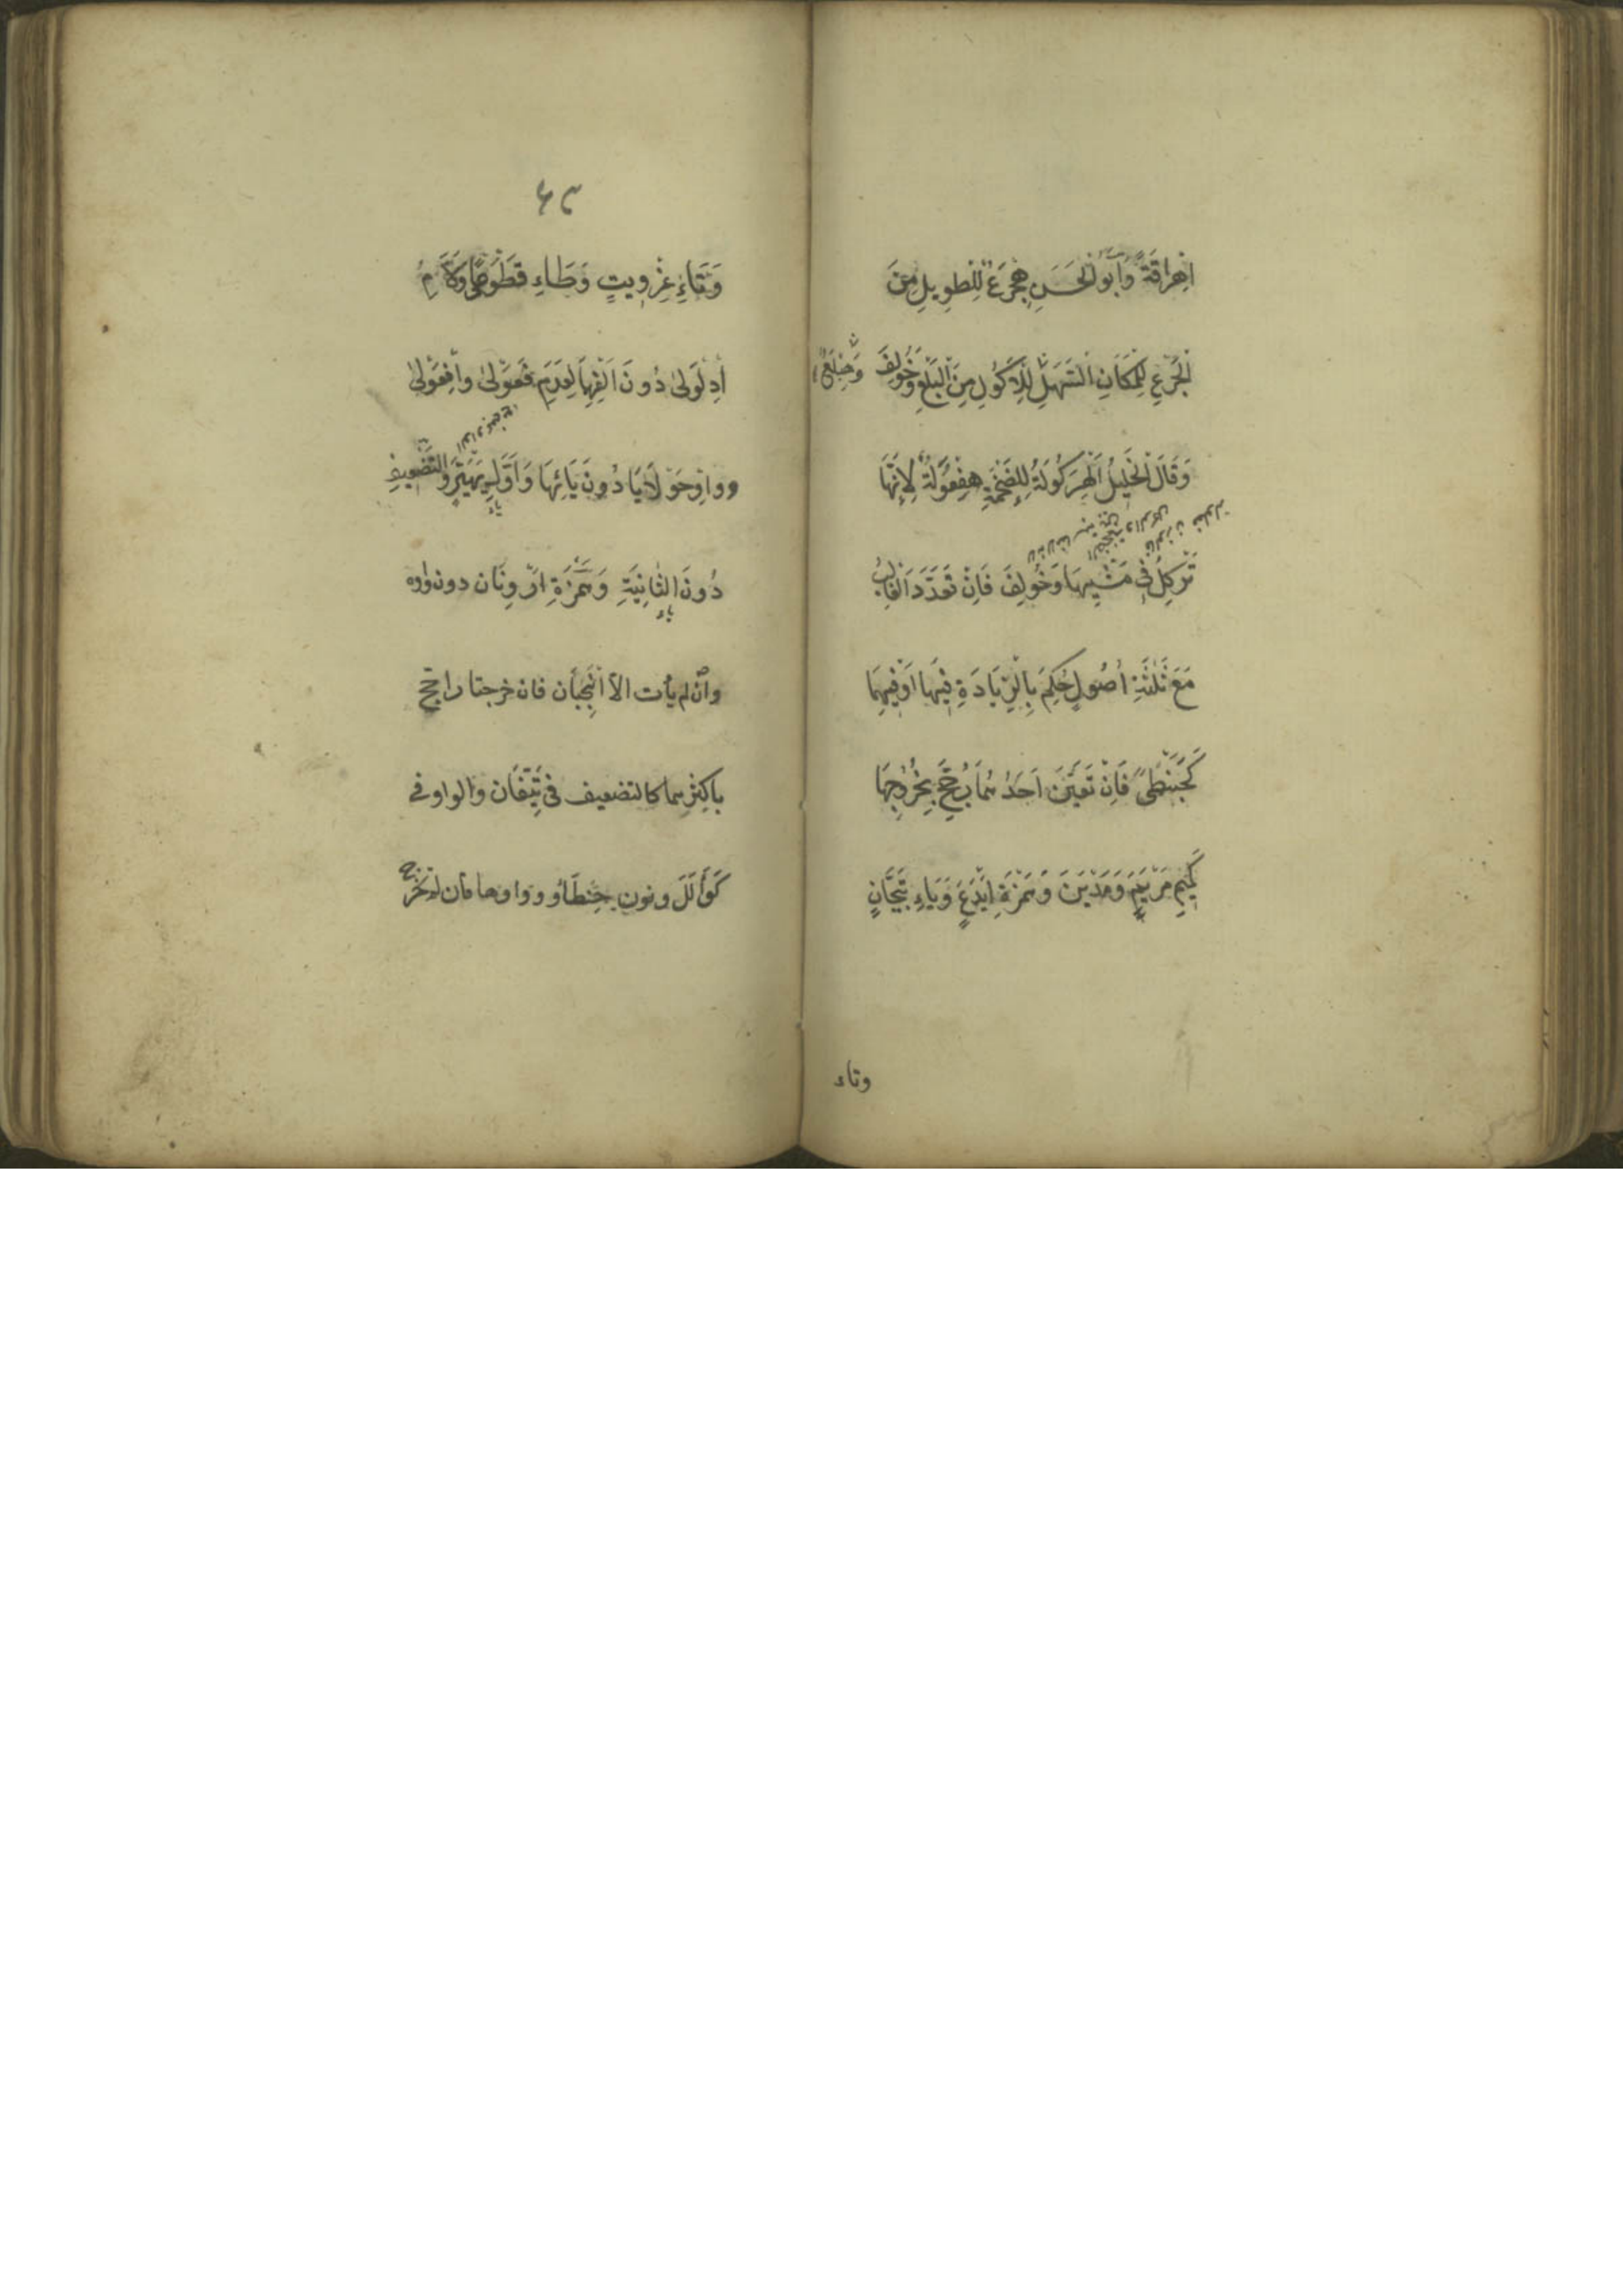 اِهْرَاقَةً وَاَبُو الْحَسَنِ هِجْرَعٌ لِلطَّوِيلِ مِنَ
الْجَرَعِ لِلْمَكَانِ السَّهْلِ لِلْاَكُولِ مِنَ الْبَلْعِ وَخُولِفَ
وَهِبْلَعٌ
وَقَالَ الْخَلِيلُ اَلْهِرْكَوْلَةُ لِلضَّخْمَةِ هِفْعَوْلَةٌ لِاَنَّهَا
تَرْكُلُ فِي مَشْيِهَا وَخُولِفَ فَاِنْ تَعَدَّدَ الْغَالِبُ
مَعَ ثَلٰثَةِ اُصُولٍ حُكِمَ بِالزِّيَادَةِ فِيهَا اَوْ فِيهِمَا
كَحَبَنْطًى فَاِنْ تَعَيَّنَ اَحَدُهُمَا رُجِّحَ بِخُرُوجِهَا
كَمِيمِ مَرْيَمَ وَمَدْيَنَ وَهَمْزَةِ اَيْدَعٍ وَيَاءِ تَيَّحَانٍ
وتاء
٤٣
وَتَاءِ عِزْوِيتٍ وَطَاءِ قَطَوْطًى وَلَامِ
اِدْلَوْلٰى دُونَ اَلِفِهَا لِعَدَمِ فَعَوْلٰى وَاِفْعَوْلٰى
وواو حَوْلَايَا دُونَ يَائِهَا وَاَوَّلِ يَهْيَرٍّ وَالتَّضْعِيفِ
دُونَ الثَّانِيَةِ وَهَمْزَةِ اَرْوِنَان دون واوه
وان لم يأت الا اَنْبَجَان فان خرجتا رجح
باكثرهما كالتضعيف فى تَئِفَّان والواو فى
كَوَأْلَل ونون حِنْطَأْو وواوها فان لم تخرج